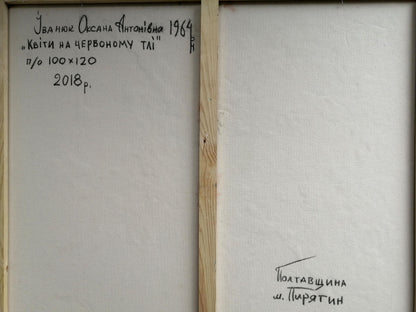 Іванюк Оксана Антонівна 1964 рн
„Квіти на червоному тлі"
п/о 100×120
2018р.
Полтавщина
м. Пирятин